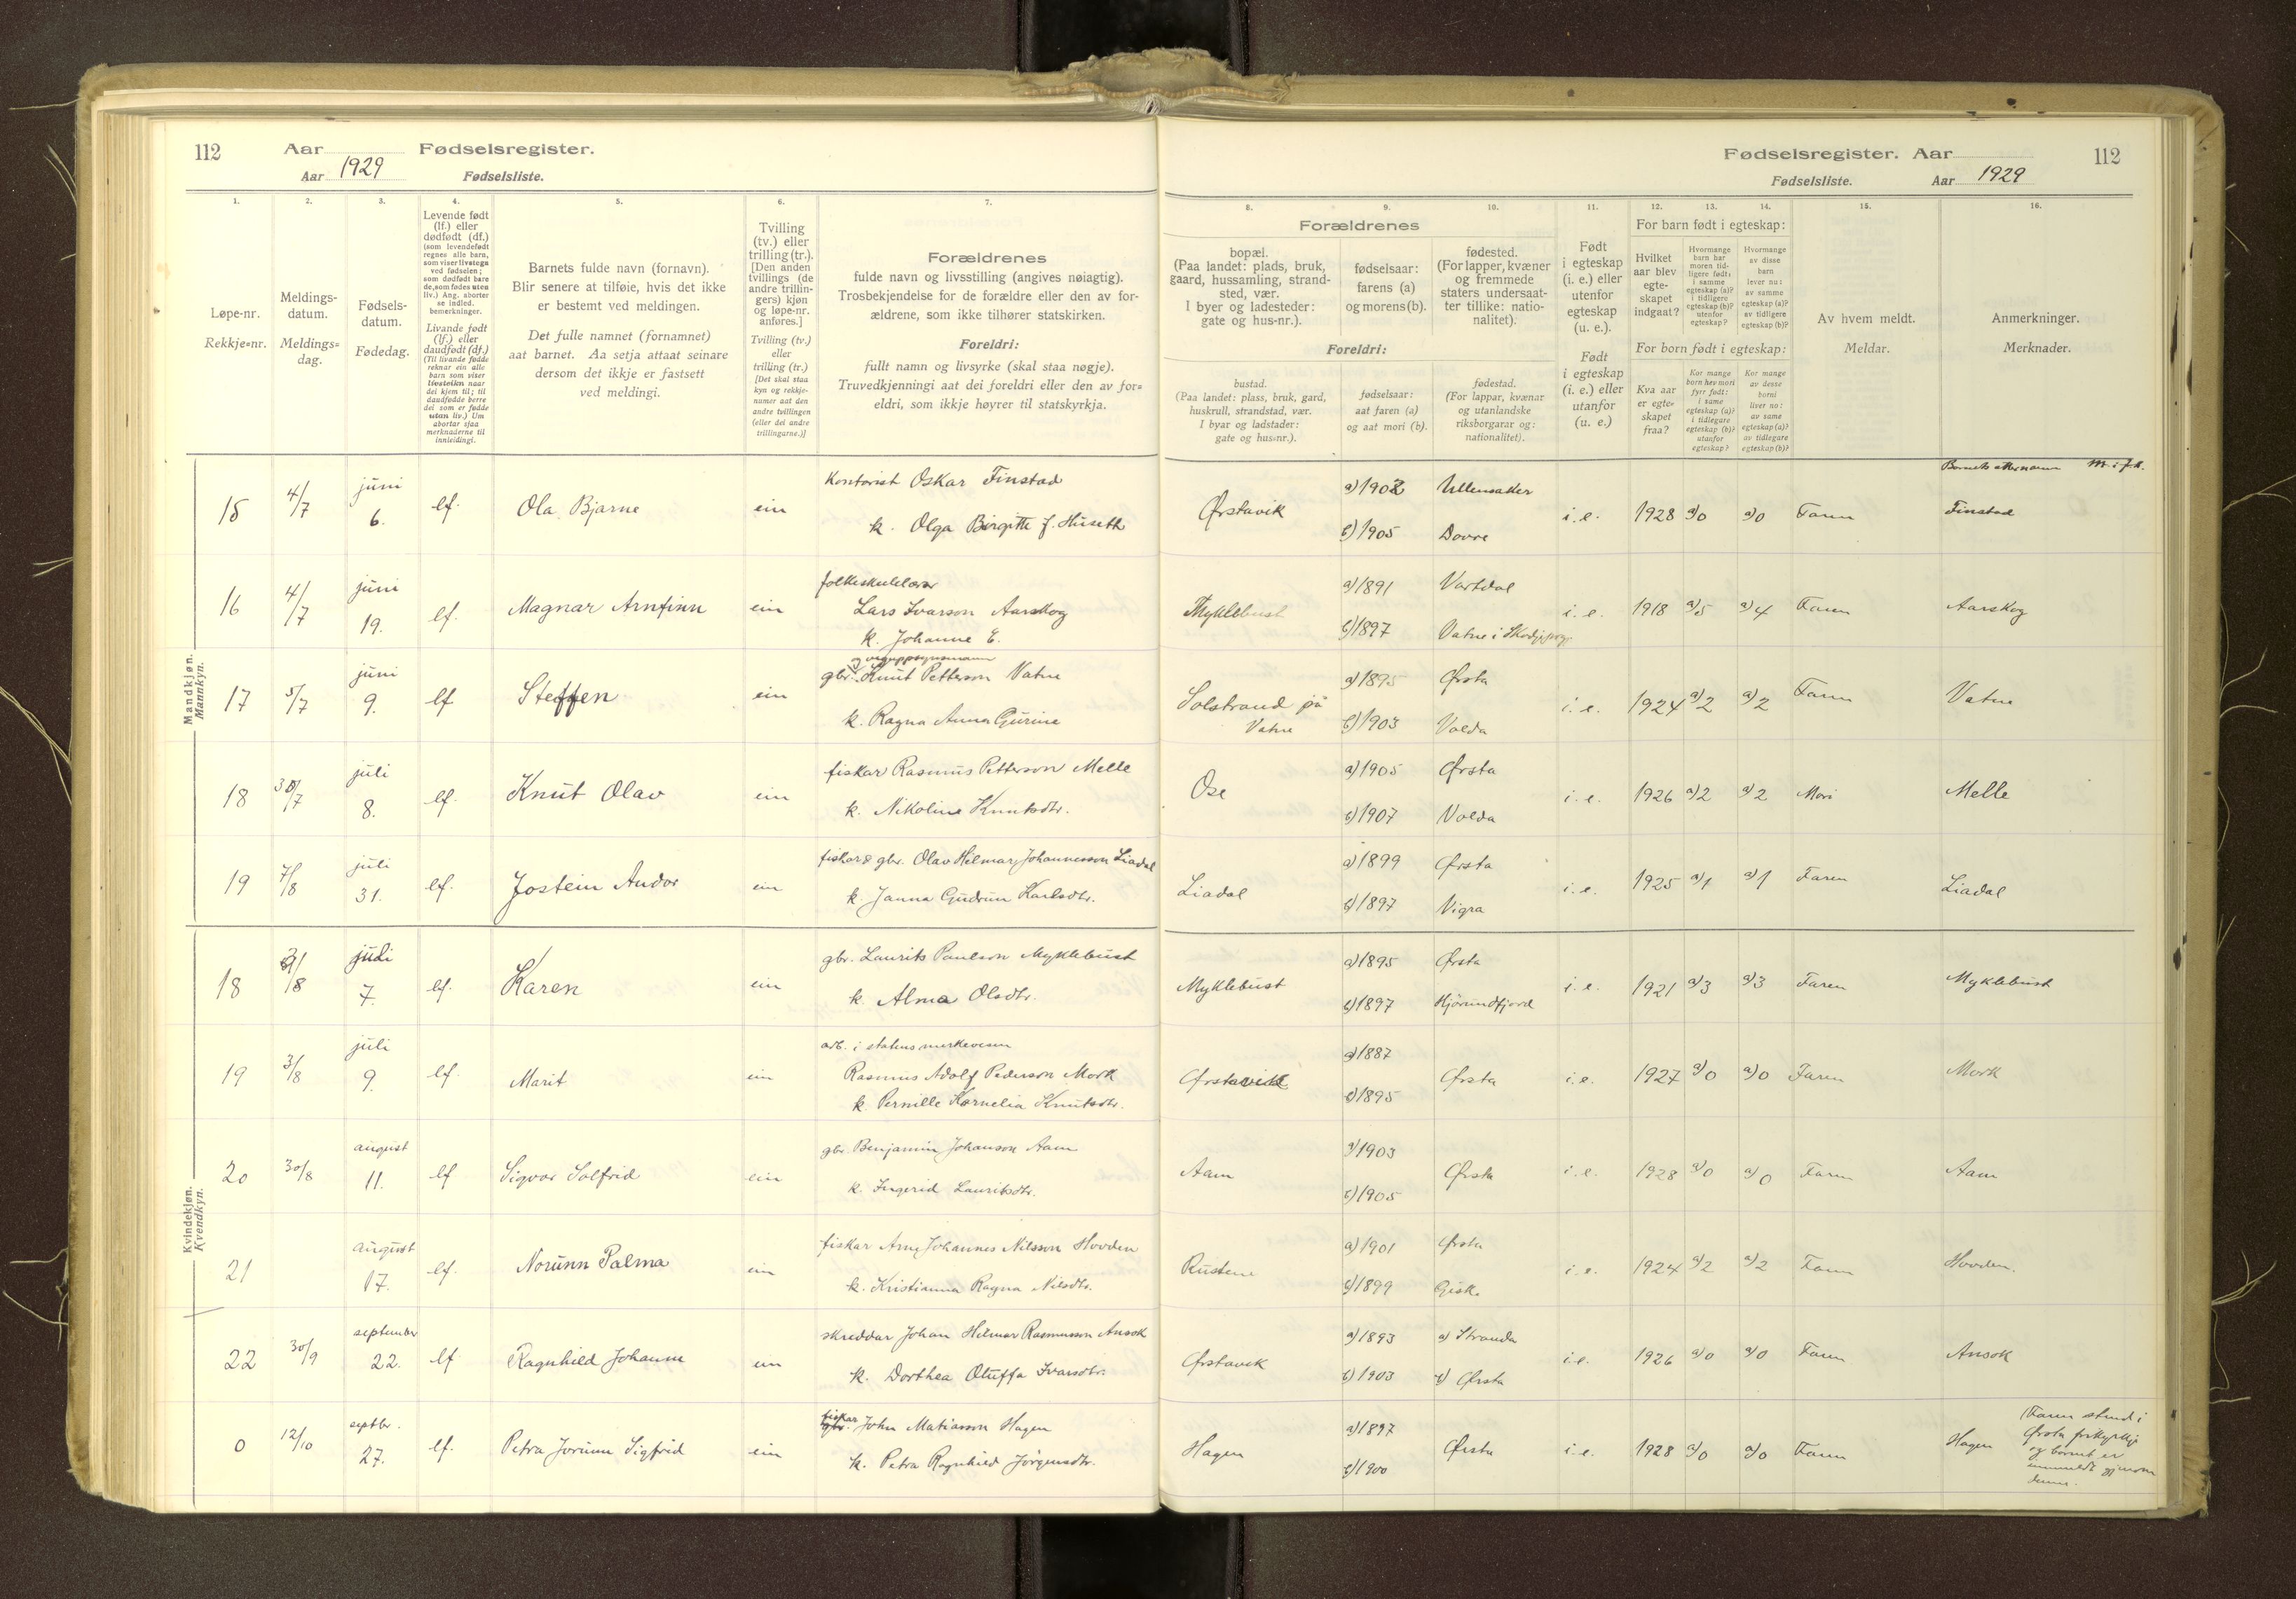 112 Aar Fødselsregister.
Aar 1929 Fødselsliste.
Fødselsregister. Aar 112
Fødselsliste. Aar 1929
1. 2. 3. 4. 5. 6. 7.
Løpe-nr.
Rekkje=nr.
Meldings-
datum.
Meldings=
dag.
Fødsels-
datum.
Fødedag.
Levende født
(lf.) eller
dødfødt (df.)
(som levendefødt
regnes alle barn,
som viser livstegn
ved fødselen;
som dødfødt bare
de, som fødes uten
liv.) Ang. aborter
se indled.
bemerkninger.
Livande født
(lf.) eller
daudfødt (df.)
(Til livande fødde
reknar ein alle
barn som viser
livsteikn naar
dei kjem til; til
daudfødde berre
dei som er fødde
utan liv.) Um
abortar sjaa
merknaderne til
innleidingi.
Barnets fulde navn (fornavn).
Blir senere at tilføie, hvis det ikke
er bestemt ved meldingen.
Det fulle namnet (fornamnet)
aat barnet. Aa setja attaat seinare
dersom det ikkje er fastsett
ved meldingi.
Tvilling
(tv.) eller
trilling (tr.).
[Den anden
tvillings (de
andre trillin-
gers) kjøn
og løpe-nr.
anføres.]
Tvilling (tv.)
eller
trilling (tr.)
[Det skal staa
kyn og rekkje-
numer aat den
andre tvillingen
(eller dei andre
trillingarne.)]
Forældrenes
fulde navn og livsstilling (angives nøiagtig).
Trosbekjendelse for de forældre eller den av for-
ældrene, som ikke tilhører statskirken.
Foreldri:
fullt namn og livsyrke (skal staa nøgje).
Truvedkjenningi aat dei foreldri eller den av for=
eldri, som ikkje høyrer til statskyrkja.
8. 9. 10. 11. 12. 13. 14. 15. 16.
Forældrenes
bopæl.
(Paa landet: plads, bruk,
gaard, hussamling, strand-
sted, vær.
I byer og ladesteder:
gate og hus-nr.).
fødselsaar:
farens (a)
og morens (b).
fødested.
(For lapper, kvæner
og fremmede
staters undersaat-
ter tillike: natio-
nalitet).
Foreldri:
bustad.
(Paa landet: plass, bruk, gard,
huskrull, strandstad, vær.
I byar og ladstader:
gate og hus=nr.).
fødselsaar:
aat faren (a)
og aat mori (b).
fødestad.
(For lappar, kvænar
og utanlandske
riksborgarar og:
nationalitet).
Født
i egteskap
(i. e.) eller
utenfor
egteskap
(u. e.).
Født
i egteskap
(i. e.) eller
utanfor
(u. e.)
For barn født i egteskap:
Hvilket
aar blev
egte-
skapet
indgaat?
Hvormange
barn har
moren tid-
ligere født:
i samme
egteskap (a)?
i tidligere
egteskap (b)?
utenfor
egteskap?
Hvormange
av disse
barn
lever nu:
av samme
egteskap (a)?
av tidligere
egteskap (b)?
For born født i egteskap:
Kva aar
er egte-
skapet
fraa?
Kor mange
born hev mori
fyrr født:
i same
egteskap (a)?
i tidlegare
egteskap (b)?
utanfor
egteskap?
Kor mange
av desse
borni
liver no:
av same
egteskap (a)?
av tidlegare
egteskap (b)?
Av hvem meldt.
Meldar.
Anmerkninger.
Merknader.
Mandkjøn.
Mannkyn.
15 4/7 juni 6. lf. Ola Bjarne ein
Kontorist Oskar Finstad
k. Olga Birgitte f. Huseth
Ørstavik a) 1902 Ullensaker
b) 1905 Dovre
i. e. 1928 a) 0 a) 0 Faren
Barnets etternamn
Finstad
16 4/7 juni 19. lf. Magnar Arnfinn ein
folkeskulelærar
Lars Ivarson Aarskog
k. Johanne E.
Myklebust a) 1891 Vartdal
b) 1897 Vatne i
i. e. 1918 a) 5 a) 4 Faren Aarskog
17 5/7 juni 9. lf Steffen ein
gbr. Knut Petterson Vatne
k. Ragna Anna Gurine
Solstrand på
Vatne
a) 1895 Ørsta
b) 1903 Volda
i. e. 1924 a) 2 a) 2 Faren Vatne
18 30/7 juli 8. lf. Knut Olav ein
fiskar Rasmus Petterson Melle
k. Nikoline Knutsdtr.
Ose a) 1905 Ørsta
b) 1907 Volda
i. e. 1926 a) 2 a) 2 Mori Melle
19 7/8 juli 31. lf. Jostein Andor ein
fiskar & gbr. Olav Hilmar Johannesson Liadal
k. Janna Gudrun Karlsdtr.
Liadal a) 1899 Ørsta
b) 1897 Vigra
i. e. 1925 a) 1 a) 1 Faren Liadal
Kvindekjøn.
Kvendkyn.
18 3/8 juli 7. lf. Karen ein
gbr. Laurits Paulson Myklebust
k. Alma Olsdtr.
Myklebust a) 1895 Ørsta
b) 1897 Hjørundfjord
i. e. 1921 a) 3 a) 3 Faren Myklebust
19 3/8 juli 9. lf. Marit ein
arb. i statens merkevesen
Rasmus Adolf Pederson Mork
k. Pernille Kornelia Knutsdtr.
Ørstavik a) 1887
b) 1895 Ørsta
i. e. 1927 a) 0 a) 0 Faren Mork
20 30/8 august 11. lf Sigvor Solfrid ein
gbr. Benjamin Johanson Aam
k. Ingerid Lauritsdtr.
Aam a) 1903
b) 1905 Ørsta
i. e. 1928 a) 0 a) 0 Faren Aam
21 august 17. lf. Norunn Palma ein
fiskar Arne Johannes Nilsson Hovden
k. Kristianna Ragna Nilsdtr.
Rustene a) 1901 Ørsta
b) 1899 Giske
i. e. 1924 a) 2 a) 2 Faren Hovden.
22 30/9 september 22. lf Ragnhild Johanne ein
skreddar Johan Hilmar Rasmusson Ansok
k. Dorthea Oluffa Ivarsdtr.
Ørstavik a) 1893 a) Stranda
b) 1903 b) Ørsta
i. e. 1926 a) 0 a) 0 Faren Ansok
0 12/10 septbr. 27. lf. Petra Jorunn Sigfrid ein
fiskar
gbr. John Matiasson Hagen
k. Petra Ragnhild Jørgensdtr.
Hagen a) 1897
b) 1900 Ørsta
i. e. 1928 a) 0 a) 0 Faren Hagen
Faren stend i
Ørsta frikyrkje
og barnet er
innmeldt gjenom
denne.